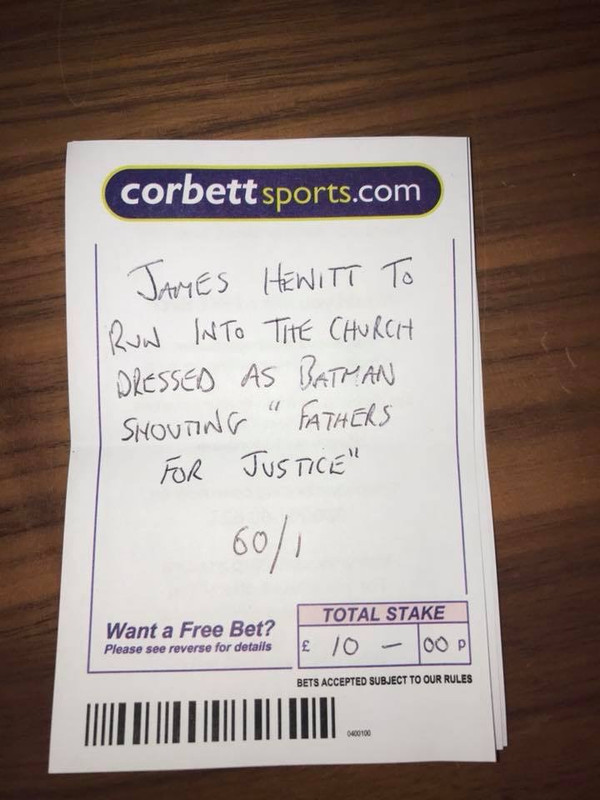 corbettsports.com
JAMES HEWITT TO
RUN INTO THE CHURCH
DRESSED AS BATMAN
SHOUTING "FATHERS
FOR JUSTICE"
60/1
Want a Free Bet?
Please see reverse for details
TOTAL STAKE
£ 10 - 00 P
BETS ACCEPTED SUBJECT TO OUR RULES
0400100